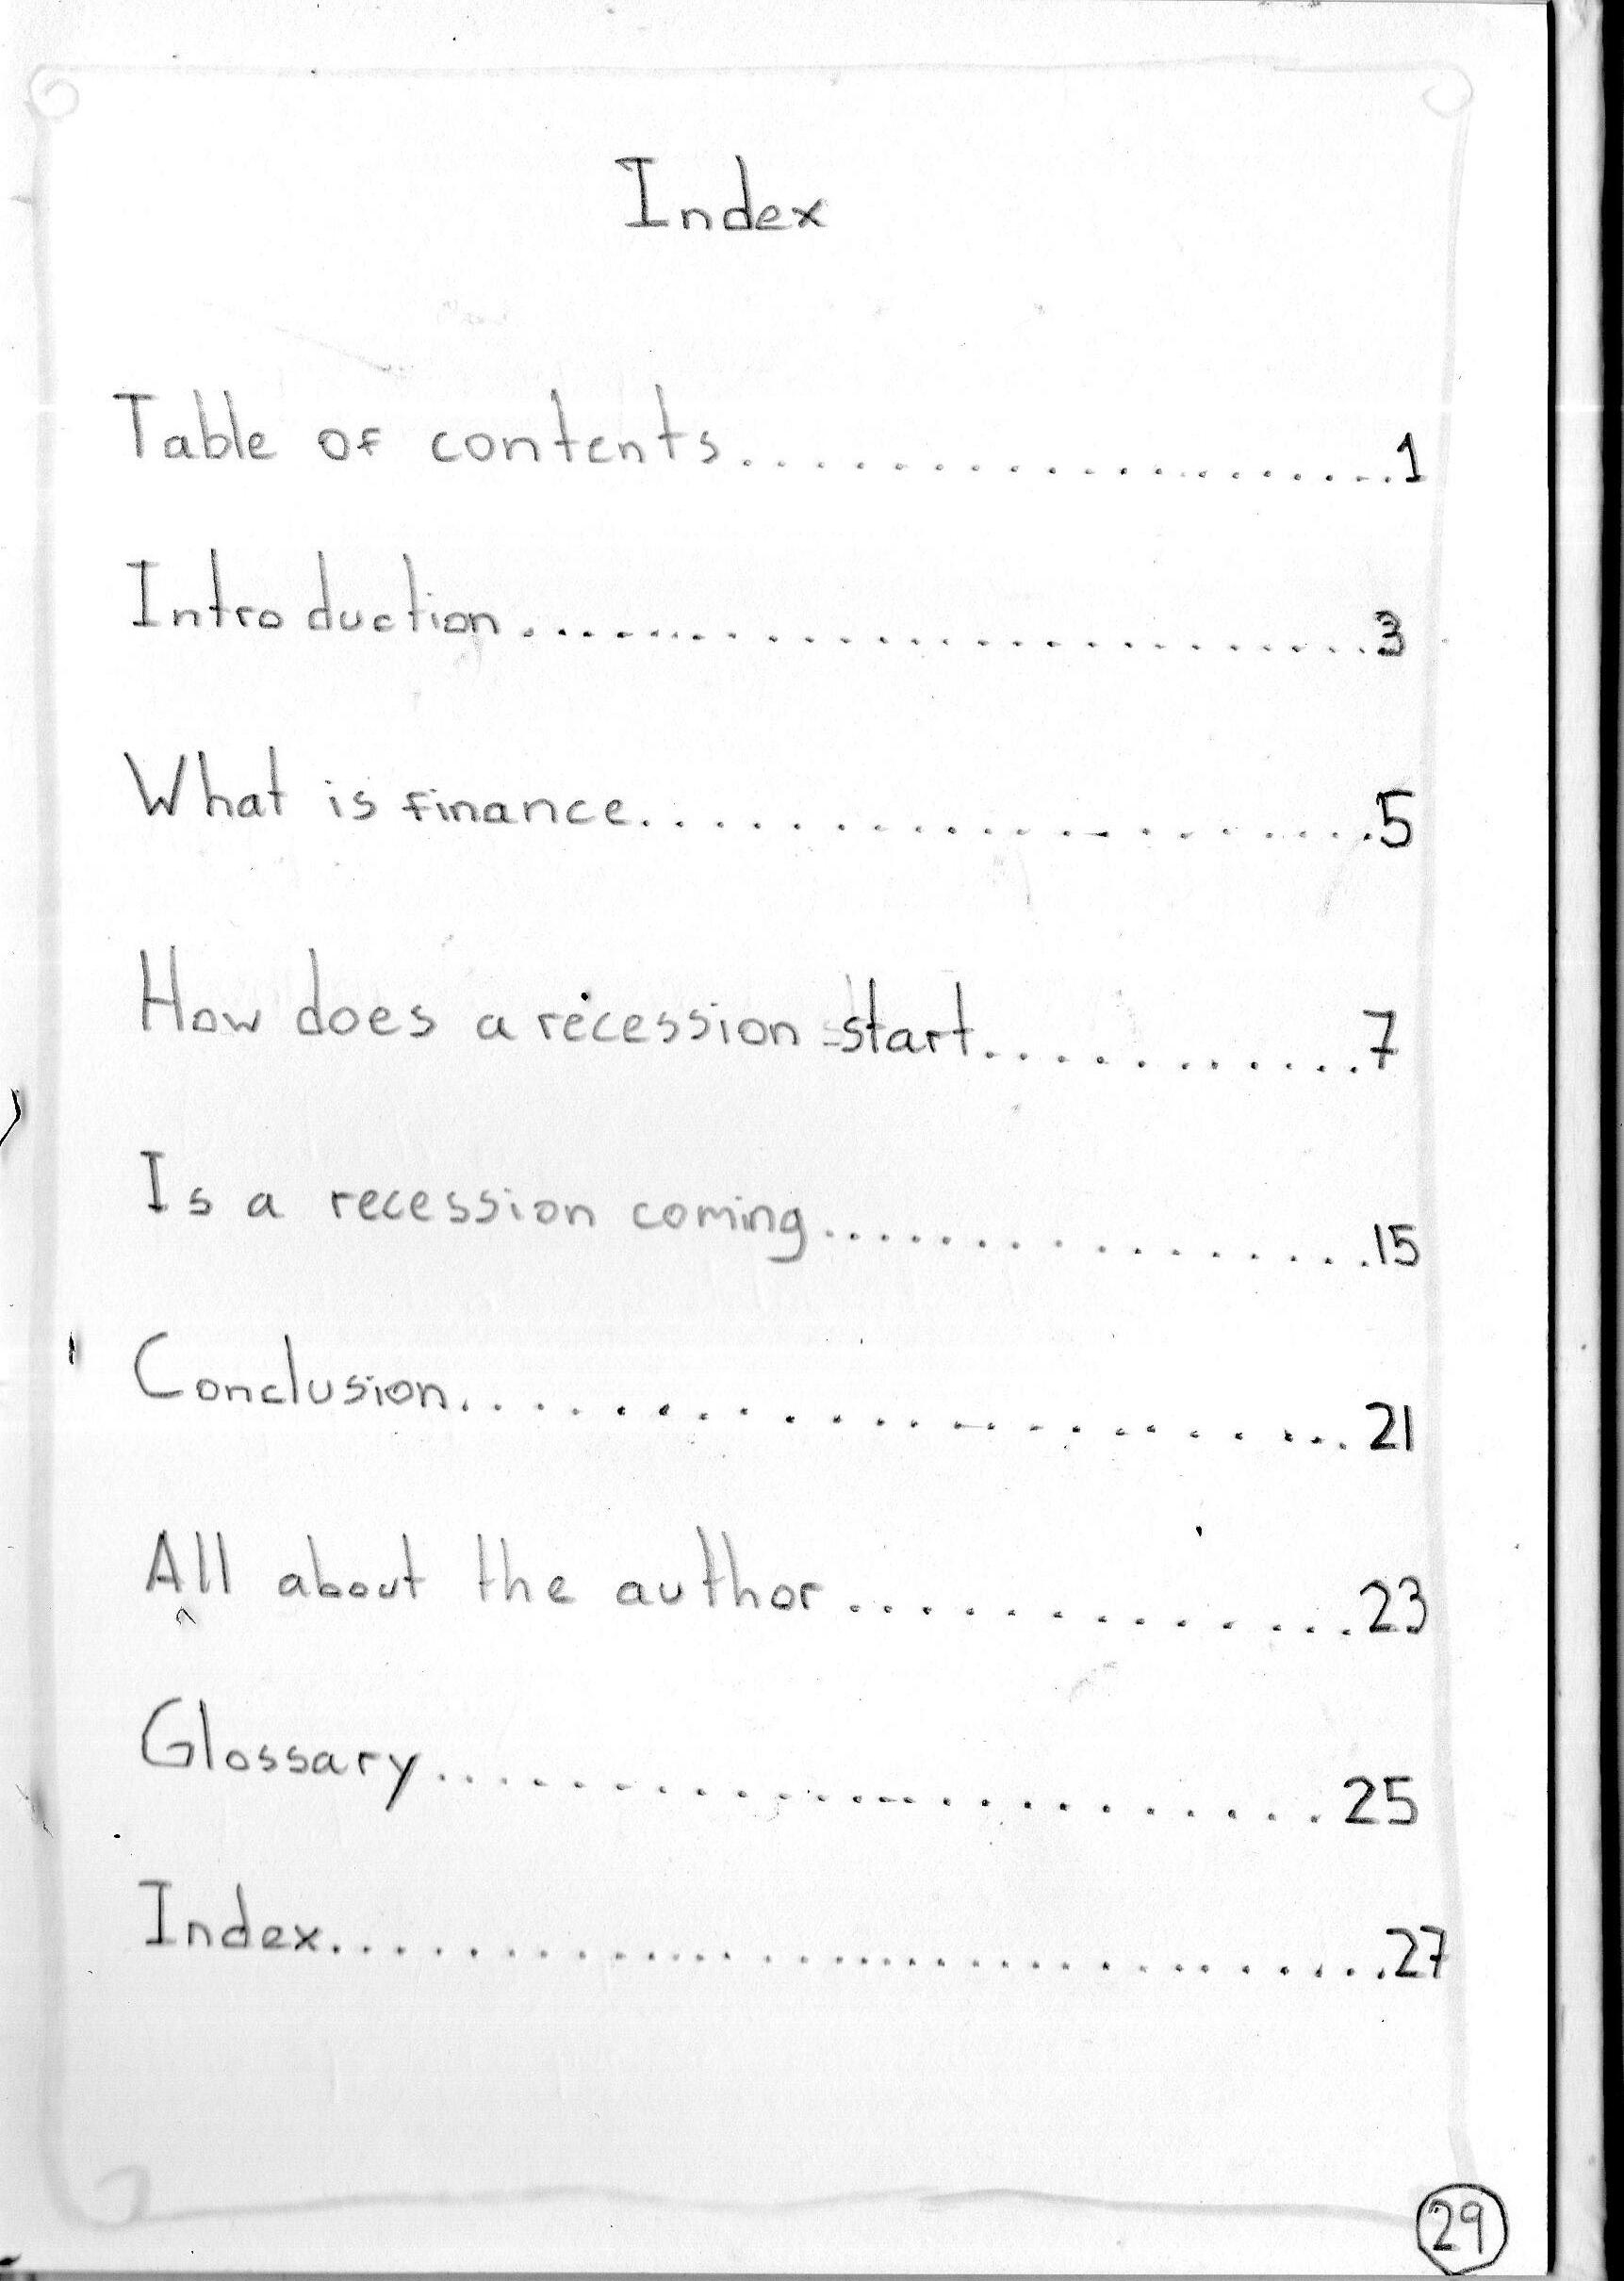 Index
Table of contents......................1
Introduction..........................3
What is finance.....................5
How does a recession start............7
Is a recession coming.................15
Conclusion........................21
All about the author..............23
Glossary........................25
Index..............................27
29